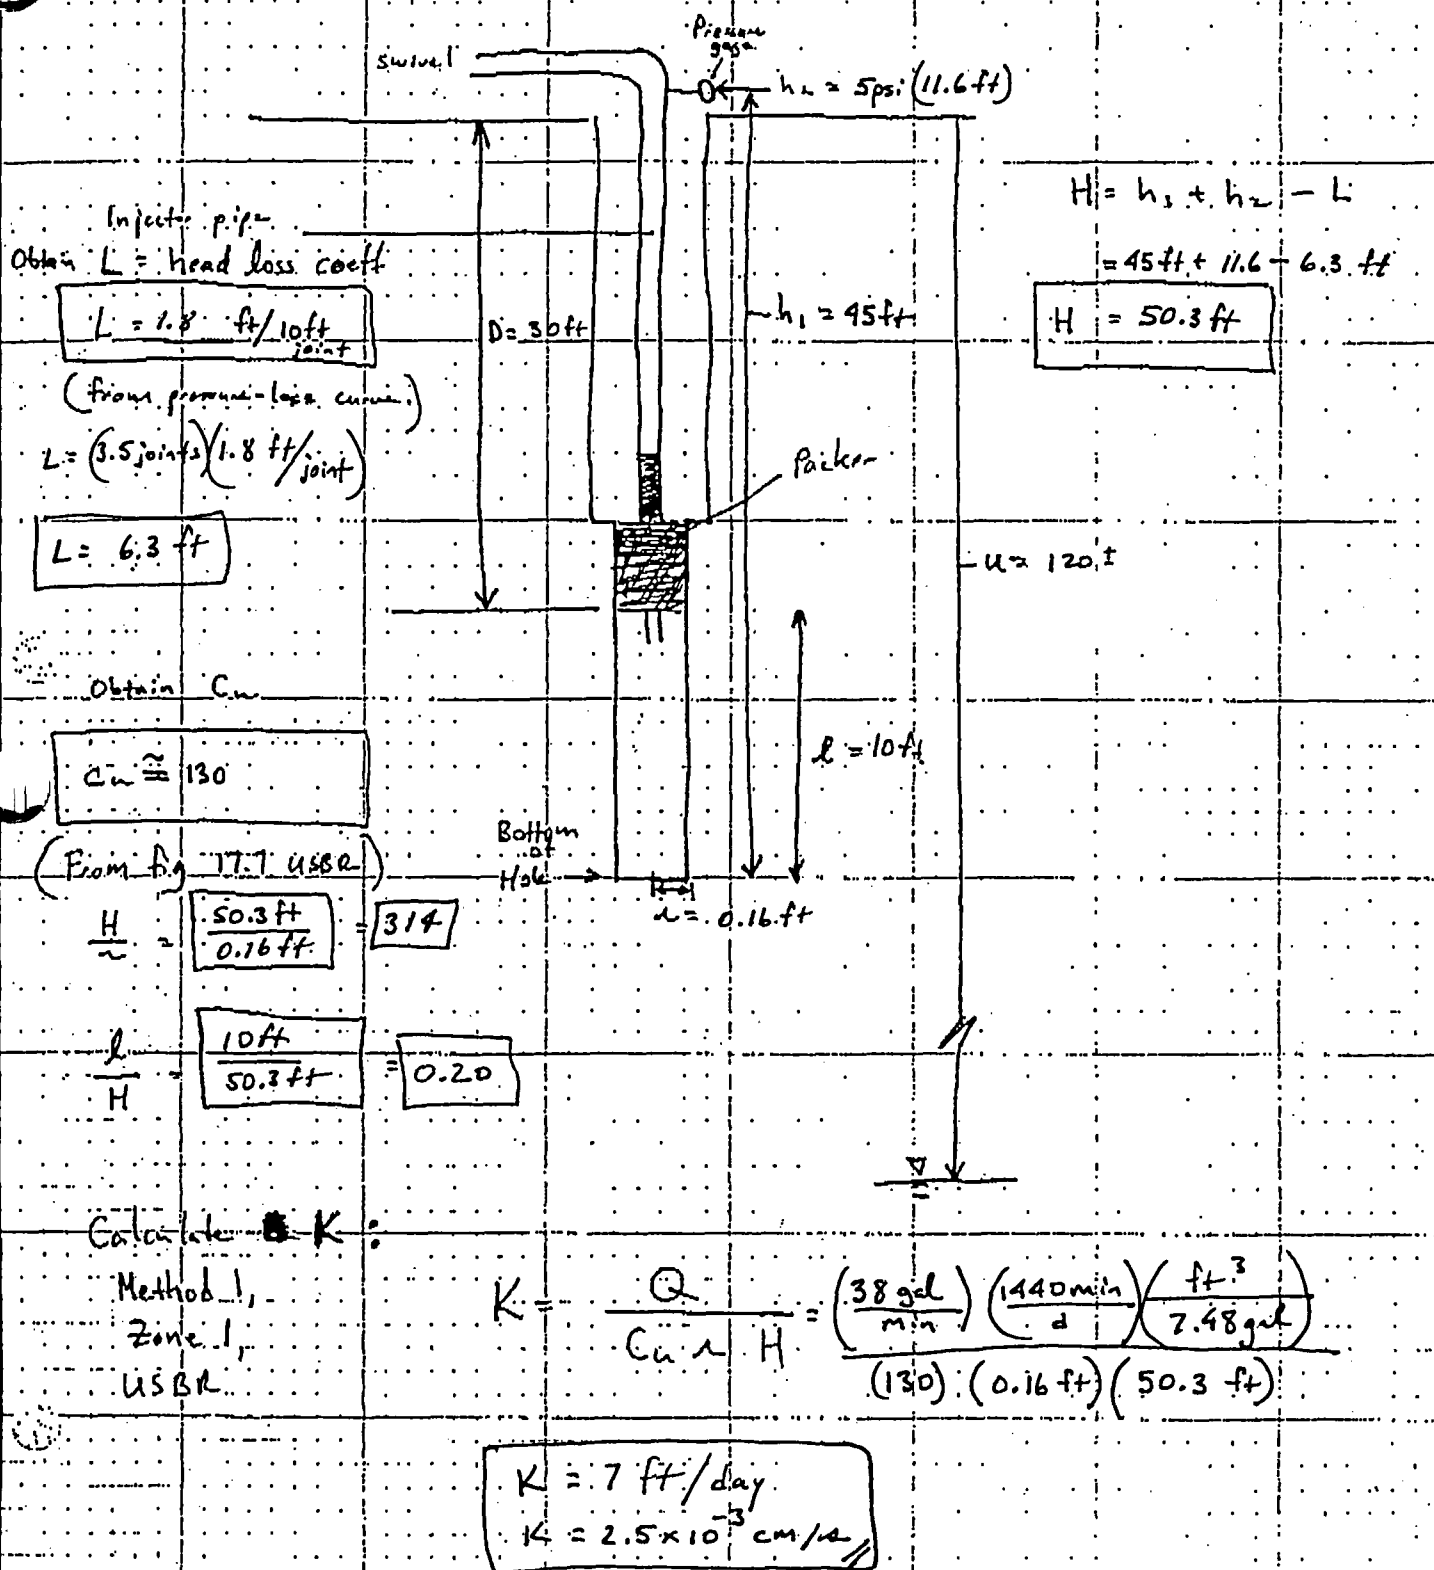 Pressure
gage
swivel
h₂ = 5psi (11.6 ft)
H = h₁ + h₂ - L
= 45 ft + 11.6 - 6.3 ft
H = 50.3 ft
Injector pipe
Obtain L = head loss coeff
L = 1.8 ft/10ft
joint
(from pressure-loss curve.)
L = (3.5 joints)(1.8 ft/joint)
L = 6.3 ft
D = 30 ft
h₁ = 45 ft
Packer
U = 120 ±
Obtain Cu
Cu ≅ 130
(From fig 17.7 USBR)
l = 10 ft
Bottom
of
Hole
r = 0.16 ft
H/r = 50.3 ft/0.16 ft = 314
l/H = 10 ft/50.3 ft = 0.20
Calculate K :
Method 1,
Zone 1,
USBR
K = Q/(Cu r H) = (38 gal/min) (1440 min/d) (ft³/7.48 gal) / (130) (0.16 ft) (50.3 ft)
K = 7 ft/day
K = 2.5 x 10⁻³ cm/s